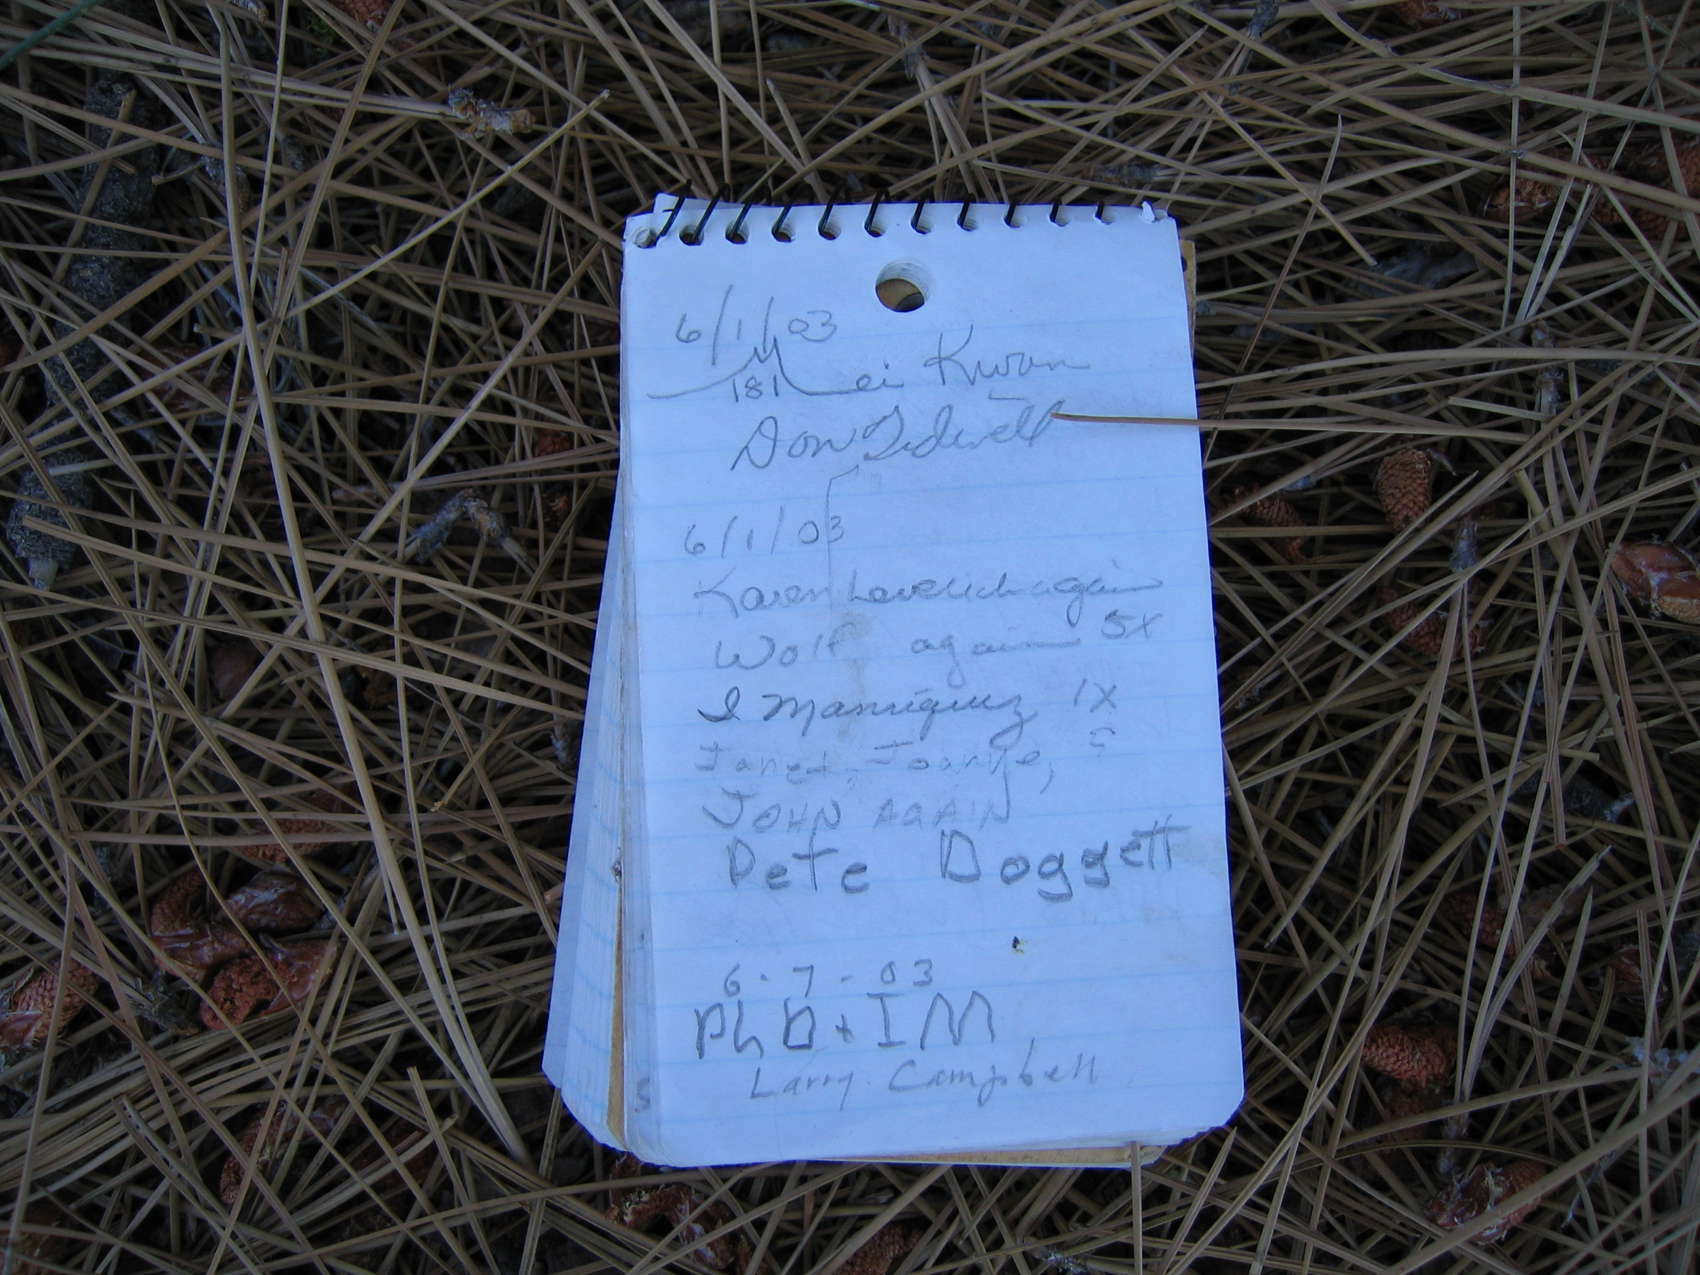 6/1/03
181 Mei Kwan
Don Tidwell
6/1/03
Karen Leverich again
Wolf again 5X
I Manriquez 1X
Janet, Joanne,
JOHN AGAIN
Pete Doggett
6-7-03
Ph D + I M
Larry Campbell